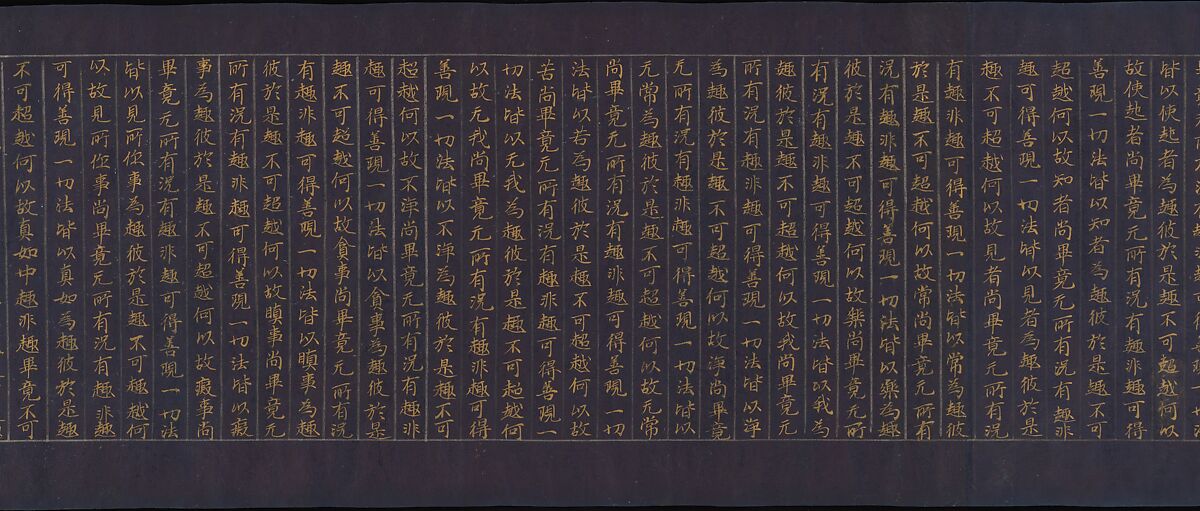 皆以使起者為趣彼於是趣不可超越何以
故使起者尚畢竟无所有況有趣非趣可得
善現一切法皆以知者為趣彼於是趣不可
超越何以故知者尚畢竟无所有況有趣非
趣可得善現一切法皆以見者為趣彼於是
趣不可超越何以故見者尚畢竟无所有況
有趣非趣可得善現一切法皆以常為趣彼
於是趣不可超越何以故常尚畢竟无所有
況有趣非趣可得善現一切法皆以樂為趣
彼於是趣不可超越何以故樂尚畢竟无所
有況有趣非趣可得善現一切法皆以我為
趣彼於是趣不可超越何以故我尚畢竟无
所有況有趣非趣可得善現一切法皆以淨
為趣彼於是趣不可超越何以故淨尚畢竟
无所有況有趣非趣可得善現一切法皆以
无常為趣彼於是趣不可超越何以故无常
尚畢竟无所有況有趣非趣可得善現一切
法皆以苦為趣彼於是趣不可超越何以故
苦尚畢竟无所有況有趣非趣可得善現一
切法皆以无我為趣彼於是趣不可超越何
以故无我尚畢竟无所有況有趣非趣可得
善現一切法皆以不淨為趣彼於是趣不可
超越何以故不淨尚畢竟无所有況有趣非
趣可得善現一切法皆以貪事為趣彼於是
趣不可超越何以故貪事尚畢竟无所有況
有趣非趣可得善現一切法皆以瞋事為趣
彼於是趣不可超越何以故瞋事尚畢竟无
所有況有趣非趣可得善現一切法皆以癡
事為趣彼於是趣不可超越何以故癡事尚
畢竟无所有況有趣非趣可得善現一切法
皆以見所作事為趣彼於是趣不可超越何
以故見所作事尚畢竟无所有況有趣非趣
可得善現一切法皆以真如為趣彼於是趣
不可超越何以故真如中趣非趣畢竟不可